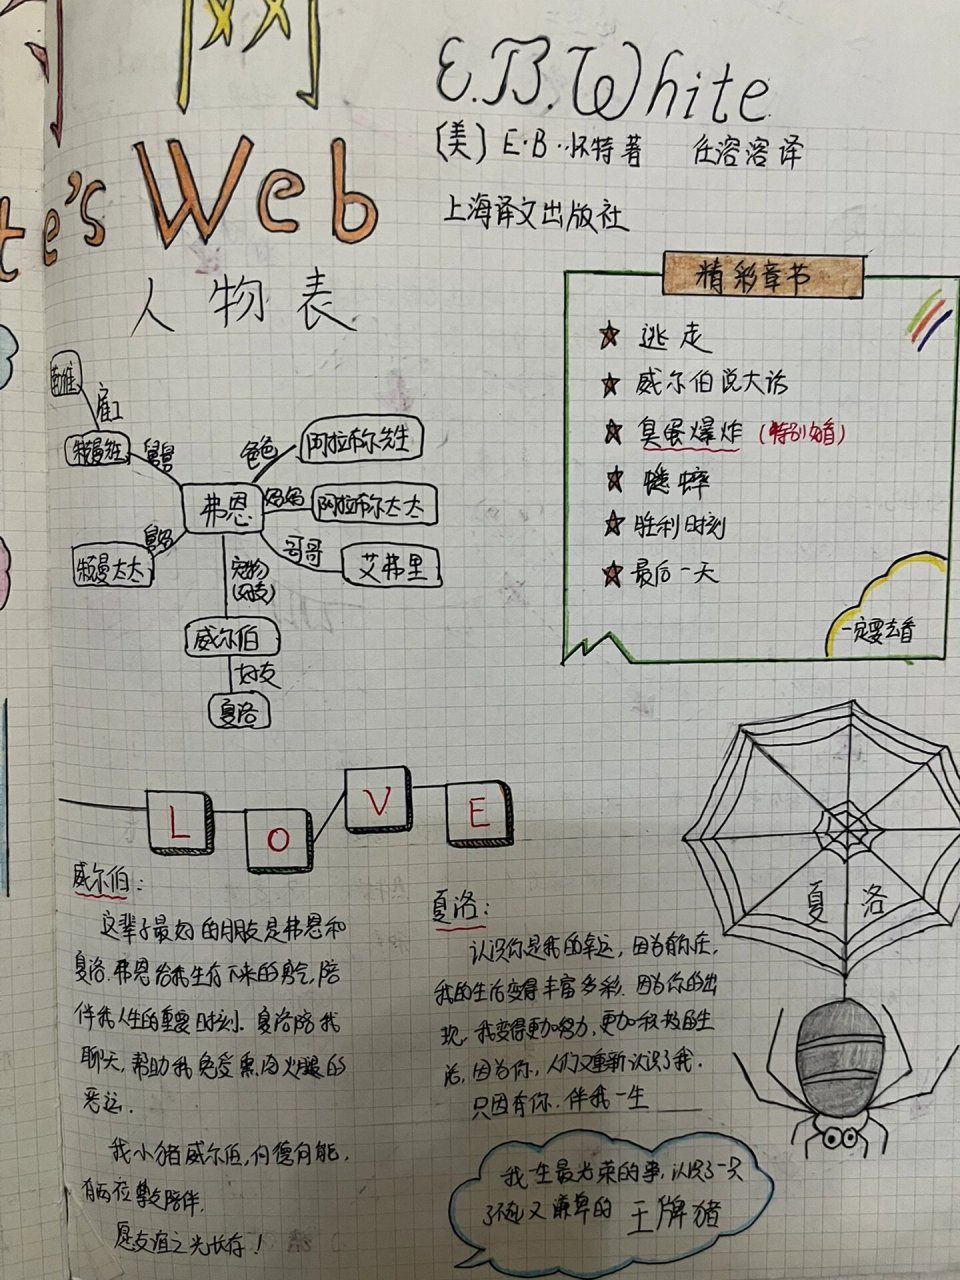 网
te's Web
E.B.White
(美) E·B·怀特著 任溶溶译
上海译文出版社
人物表
雇工
朱克曼先生
舅舅
爸爸
阿拉布尔先生
弗恩
妈妈
阿拉布尔太太
舅妈
朱克曼太太
哥哥
艾弗里
宠物
(好友)
威尔伯
好友
夏洛
精彩章节
逃走
威尔伯说大话
臭蛋爆炸 (特别好看)
蟋蟀
胜利时刻
最后一天
一定要去看
L O V E
威尔伯:
这辈子最好的朋友是弗恩和
夏洛.弗恩给我生存下来的勇气,陪
伴我人生的重要时刻.夏洛陪我
聊天,帮助我免受熏肉火腿的
恶运.
我小猪威尔伯,何德何能,
有两位挚友陪伴.
愿友谊之光长存!
夏洛:
认识你是我的幸运,因为有你在,
我的生活变得丰富多彩.因为你的出
现,我变得更加努力,更加积极的生
活,因为你,人们又重新认识了我.
只因有你.伴我一生
夏洛
我一生最光荣的事,认识了一只
了不起又谦卑的 王牌猪